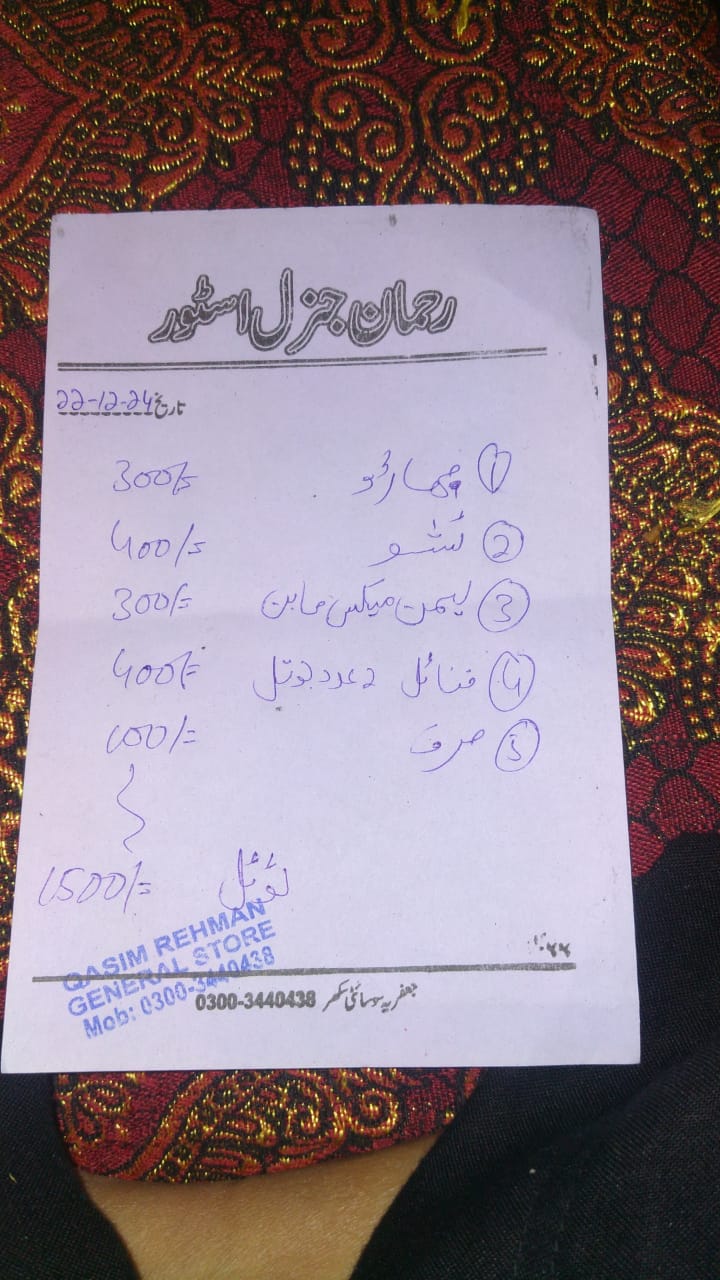 رحمان جنرل اسٹور
تاریخ 22-12-24
① جھاڑو 300/=
② ٹشو 400/=
③ لیمن میکس صابن 300/=
④ فنائل 2 عدد بوتل 400/=
⑤ صرف 100/=
ٹوٹل 1500/=
QASIM REHMAN
GENERAL STORE
Mob: 0300-3440438
جعفریہ سوسائٹی سکھر 0300-3440438